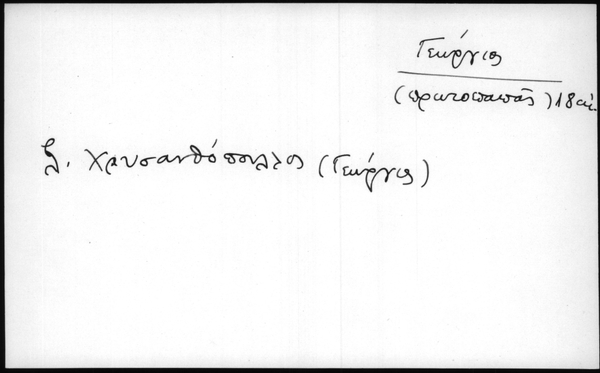 Γεώργιος
(πρωτοπαπᾶς) 18 αἰ.
βλ. Χρυσανθόπουλλος (Γεώργιος)